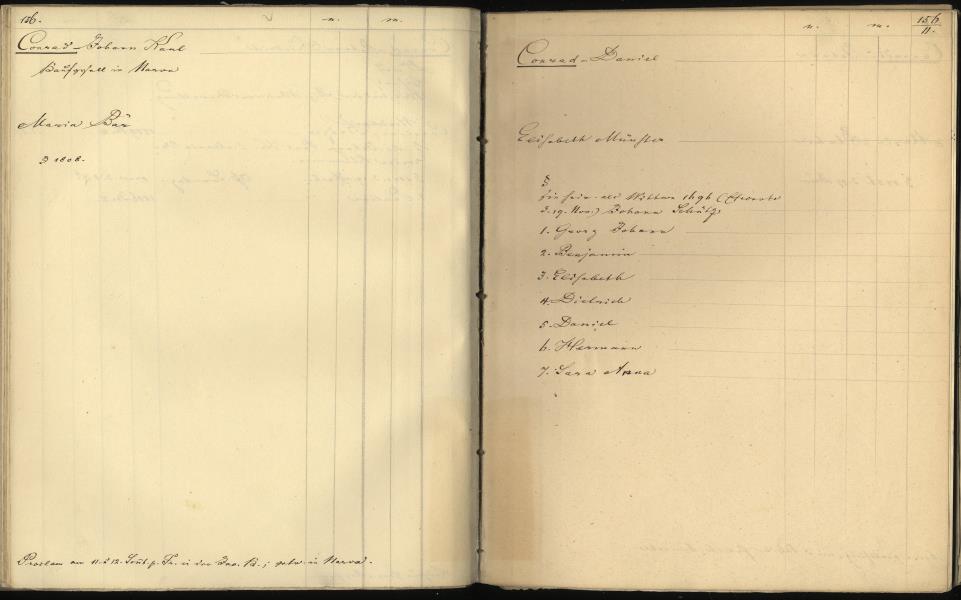 156.
n. m.
Conrad Johann Karl
Kaufgesell in Narva
Maria Bär
1808.
Proclam am 11. & 12. Sont. p. Tr. in der ; in Narva.
n. m. 156/II.
Conrad Daniel
Elisabeth Münster
§
als Wittwe 1696
d. 19. Nov.) Johann Schütz
1. Georg Johann
2. Benjamin
3. Elisabeth
4. Dietrich
5. Daniel
6. Hermann
7. Sara Anna